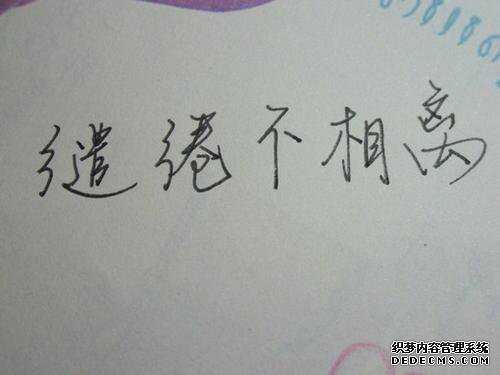 缱绻不相离
织梦内容管理系统
DEDECMS.COM